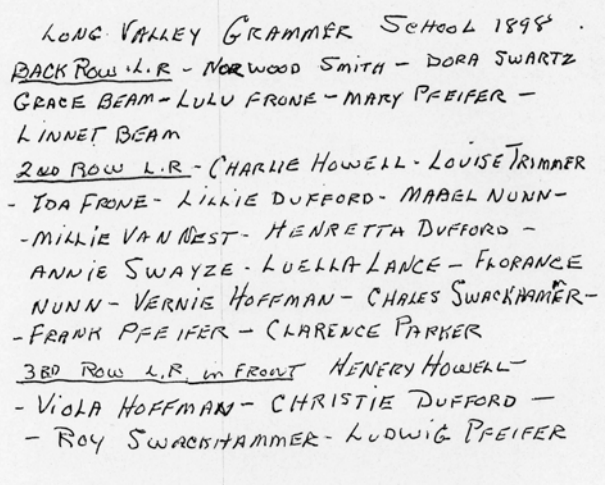 LONG VALLEY GRAMMER SCHOOL 1898.
BACK ROW. L.R - NORWOOD SMITH - DORA SWARTZ
GRACE BEAM - LULU FRONE - MARY PFEIFER -
LINNET BEAM
2ND ROW L.R - CHARLIE HOWELL - LOUISE TRIMMER
- IDA FRONE - LILLIE DUFFORD - MABEL NUNN -
- MILLIE VAN NEST - HENRETTA DUFFORD -
ANNIE SWAYZE - LUELLA LANCE - FLORANCE
NUNN - VERNIE HOFFMAN - CHALES SWACKHAMMER -
- FRANK PFEIFER - CLARENCE PARKER
3RD ROW L.R in FRONT HENERY HOWELL -
- VIOLA HOFFMAN - CHRISTIE DUFFORD -
- ROY SWACKHAMMER - LUDWIG PFEIFER